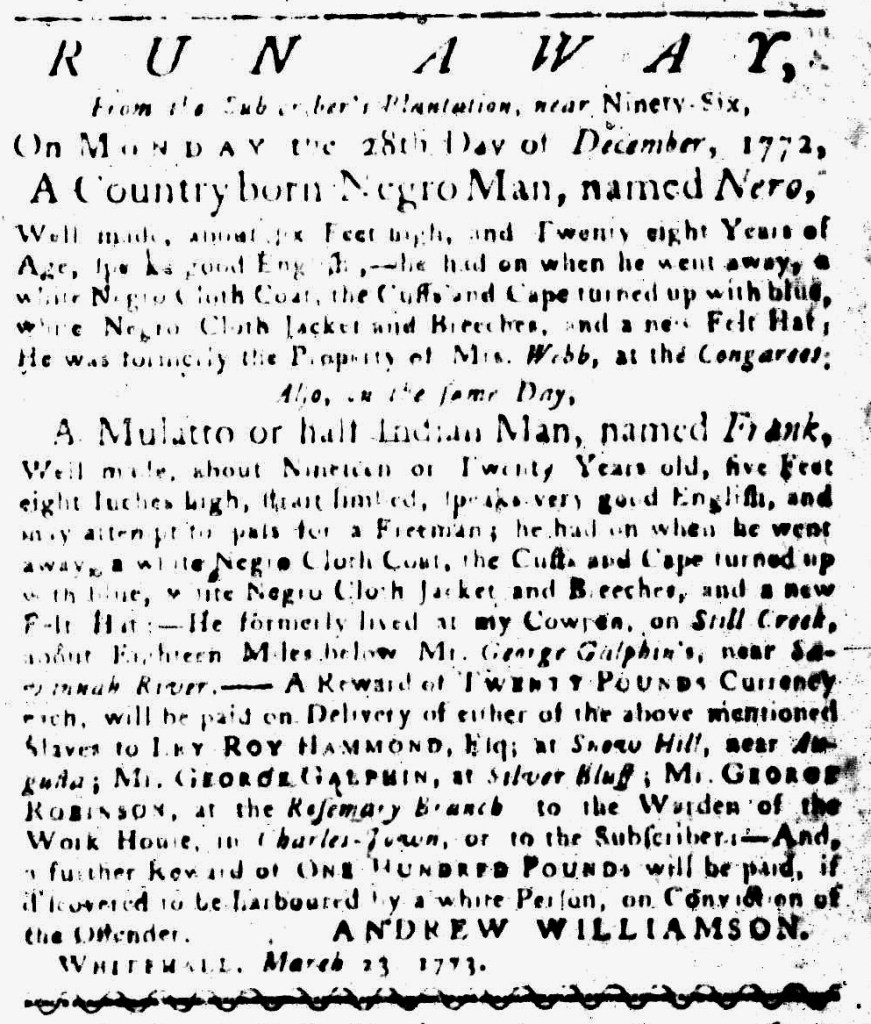 RUN AWAY,
From the Subscriber's Plantation, near Ninety-Six,
On MONDAY the 28th Day of December, 1772,
A Country born Negro Man, named Nero,
Well made, about six Feet high, and Twenty eight Years of
Age, speaks good English,—he had on when he went away, a
white Negro Cloth Coat, the Cuffs and Cape turned up with blue,
white Negro Cloth Jacket and Breeches, and a new Felt Hat;
He was formerly the Property of Mrs. Webb, at the Congarees:
Also, on the same Day,
A Mulatto or half Indian Man, named Frank,
Well made, about Nineteen or Twenty Years old, five Feet
eight Inches high, smart limbed, speaks very good English, and
may attempt to pass for a Freeman; he had on when he went
away, a white Negro Cloth Coat, the Cuffs and Cape turned up
with blue, white Negro Cloth Jacket and Breeches, and a new
Felt Hat:—He formerly lived at my Cowpen, on Still Creek,
about Eighteen Miles below Mr. George Galphin's, near Sa-
vannah River.—— A Reward of TWENTY POUNDS Currency
each, will be paid on Delivery of either of the above mentioned
Slaves to LEY ROY HAMMOND, Esq; at Snow Hill, near Au-
gusta; Mr. GEORGE GALPHIN, at Silver Bluff; Mr. GEORGE
ROBINSON, at the Rosemary Branch to the Warden of the
Work House, in Charles-Town, or to the Subscriber:—And,
a further Reward of ONE HUNDRED POUNDS will be paid, if
discovered to be harboured by a white Person, on Conviction of
the Offender. ANDREW WILLIAMSON.
WHITEHALL, March 23 1773.